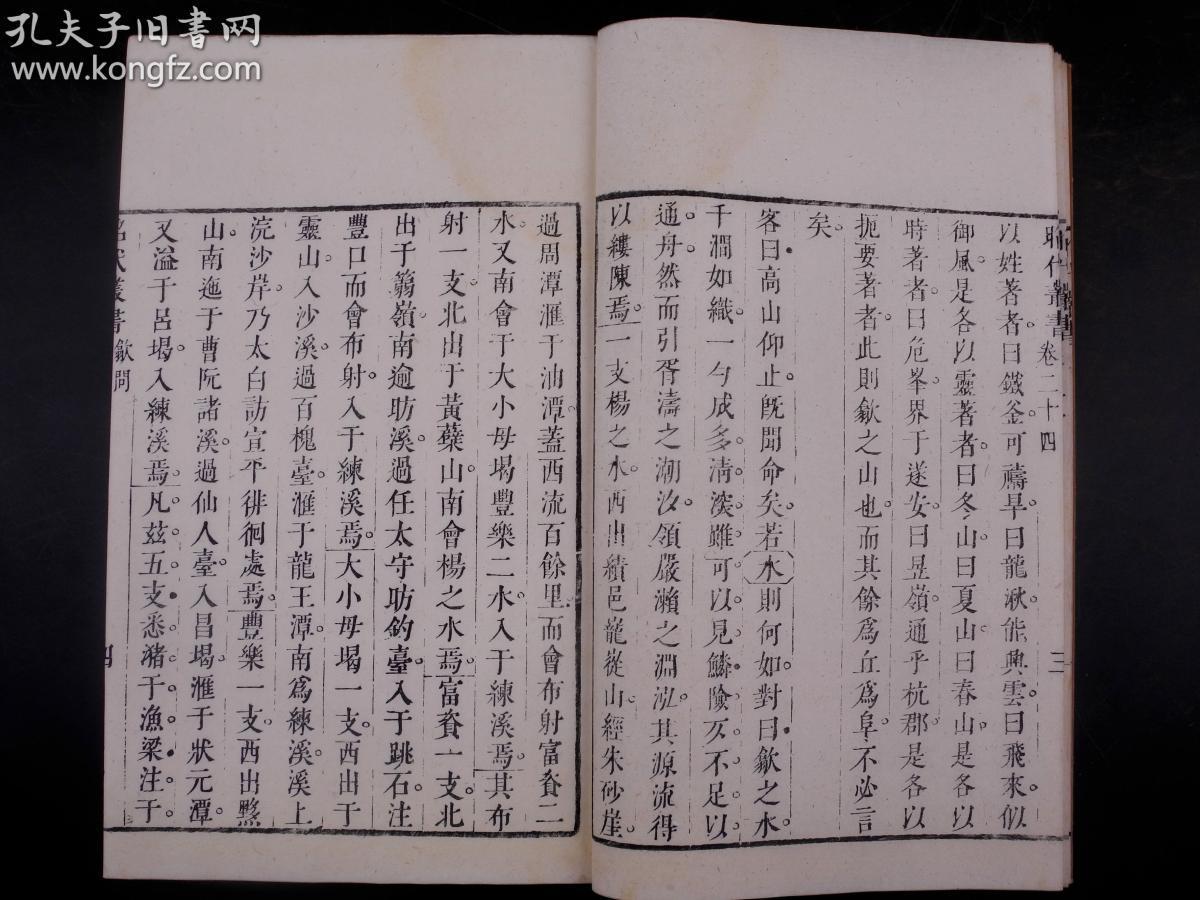 孔夫子旧书网
www.kongfz.com
昭代叢書 卷二十四 三
以姓著者曰鐵釜可禱旱曰龍湫能興雲曰飛來似
御風是各以靈著者曰冬山曰夏山曰春山是各以
時著者曰危峯界于遂安曰昱嶺通乎杭郡是各以
扼要著者此則歙之山也而其餘爲丘爲阜不必言
矣
客曰高山仰止旣聞命矣若水則何如對曰歙之水
千澗如織一勺成多淸深雖可以見鱗險仄不足以
通舟然而引胥濤之潮汝領嚴瀨之淵泓其源流得
以縷陳焉一支楊之水西出績邑龍從山經朱砂崖
過周潭滙于油潭葢西流百餘里而會布射富登二
水又南會于大小母堨豐樂二水入于練溪焉其布
射一支北出于黃蘗山南會楊之水焉富登一支北
出于篛嶺南逾昉溪過任太守昉釣臺入于跳石注
豐口而會布射入于練溪焉大小母堨一支西出于
靈山入沙溪過百槐臺滙于龍王潭南爲練溪溪上
浣沙岸乃太白訪宣平徘徊處焉豐樂一支西出黟
山南迤于曹阮諸溪過仙人臺入昌堨滙于狀元潭
又溢于呂堨入練溪焉凡茲五支悉潴于漁梁注于
昭代叢書 歙問 四